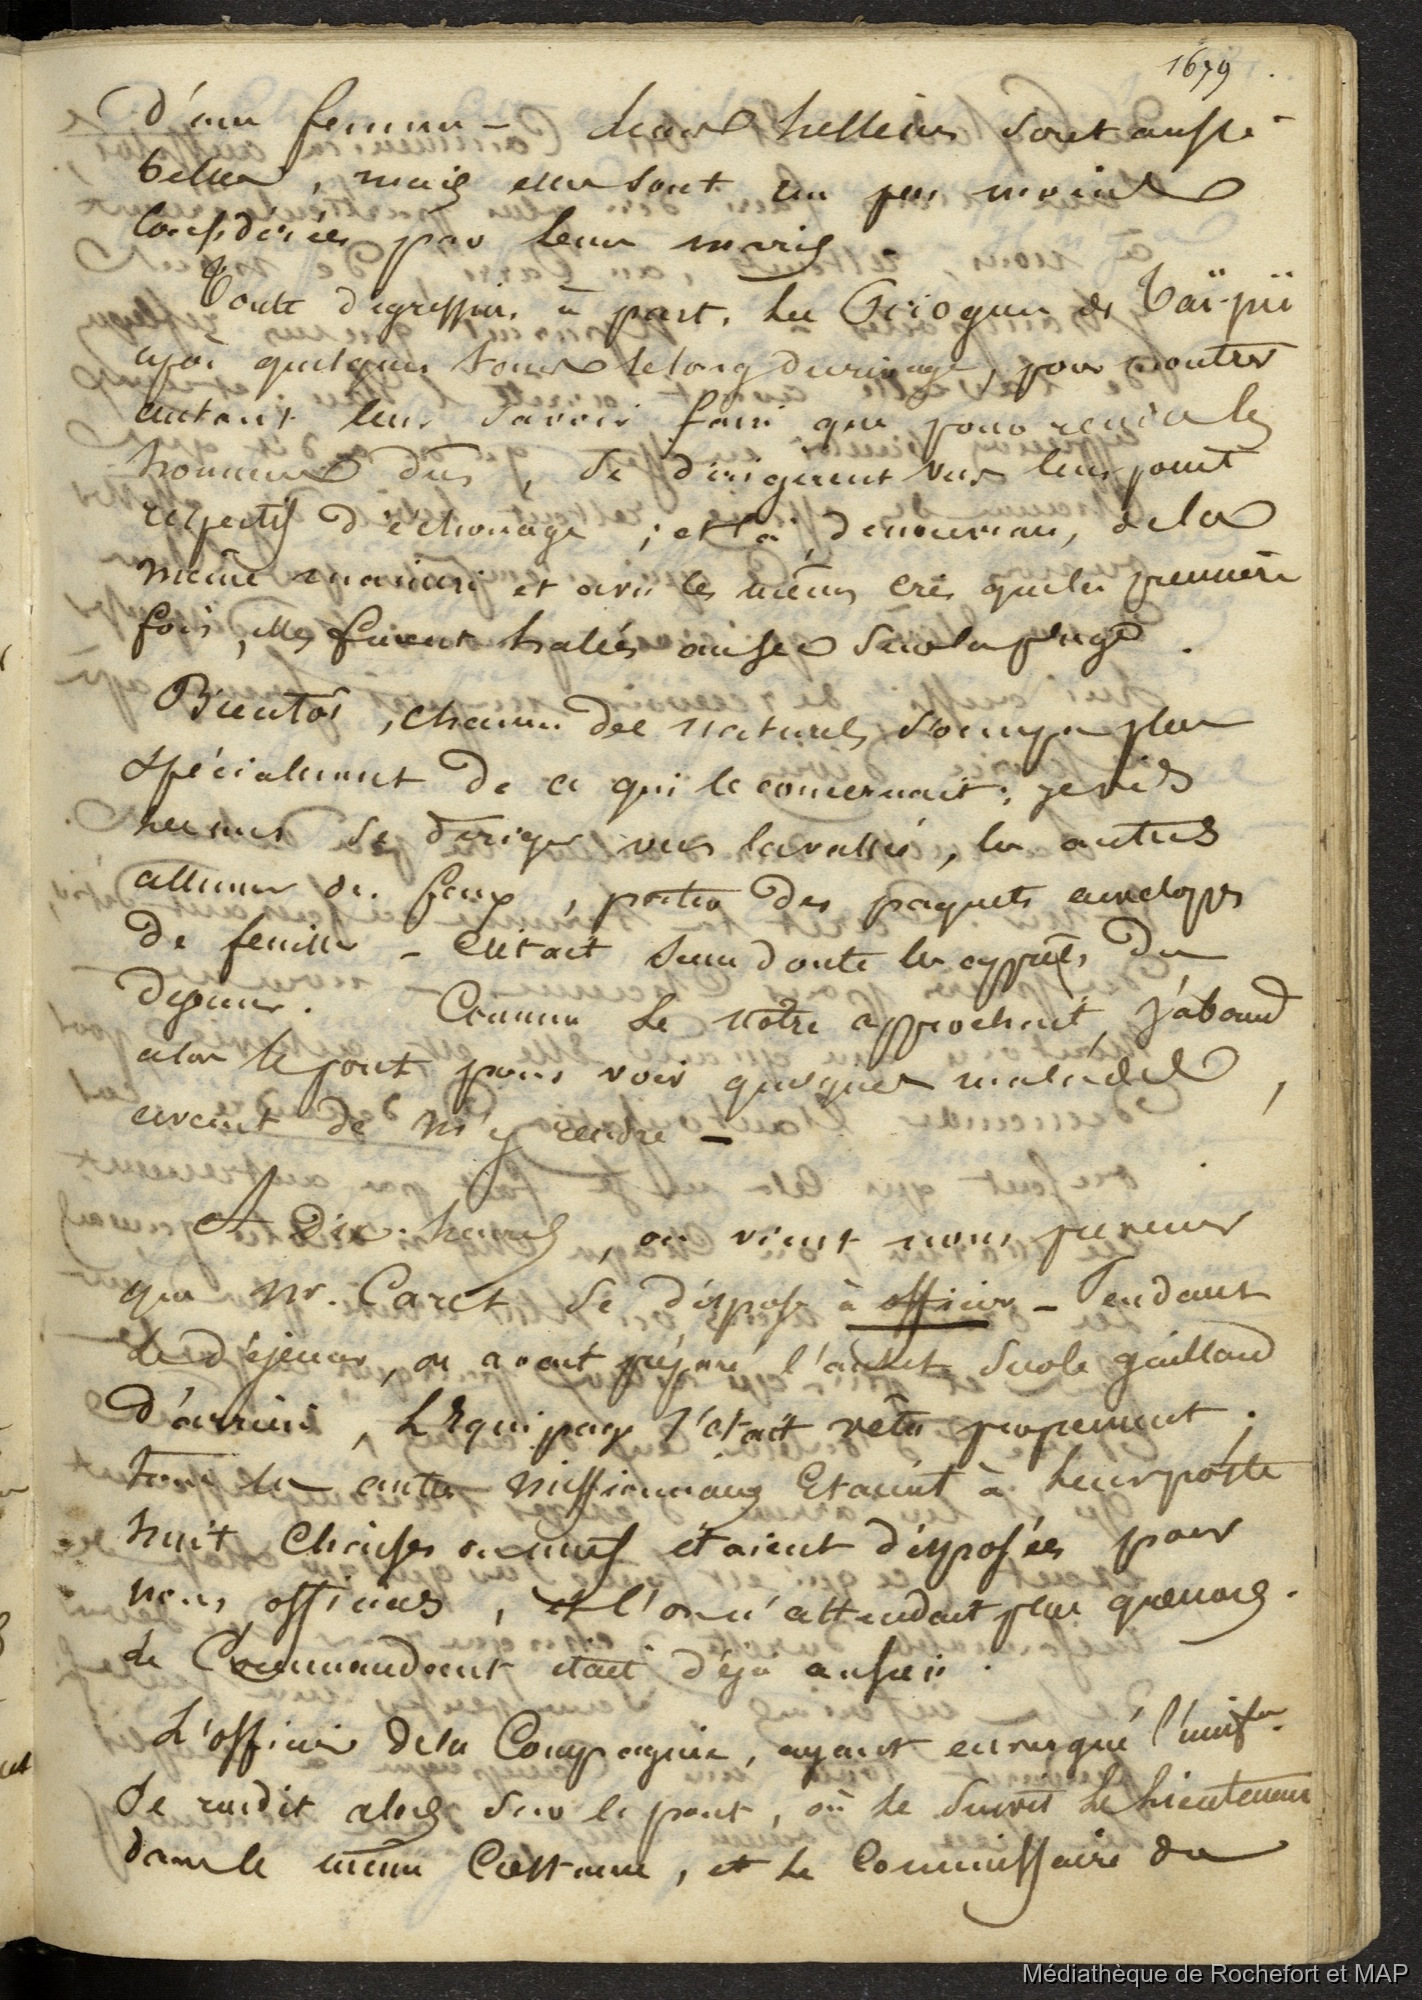 1679
d'une femme – leurs hellènes sont aussi
belles, mais elles sont un peu moins
considérées par leurs maris
Toute digression à part, les pirogues de Taï-pii
après quelques tours le long du rivage, pour montrer
autant leur savoir faire que pour rendre les
honneurs dus, se dirigèrent vers leur point
respectif d'échouage ; et là, de nouveau, de la
même manière et avec les mêmes cris que la première
fois, elles furent halées au sec sur la plage.
Bientôt, chacun des naturels s'occupe plus
spécialement de ce qui le concernait ; je vis
les uns se diriger vers la vallée, les autres
allumer des feux, porter des paquets envelopés
de feuilles – c'était sans doute les apprêts du
déjeuner. Comme le nôtre approchait, j'abandonne
alors le pont pour voir quelques malades,
avant de m'y rendre –
A dix heures, on vient nous prévenir
que Mr. Caret se dispose à officier – Pendant
le déjeuner, on avait préparé l'autel sur le gaillard
d'arrière, l'équipage s'était vêtu proprement ;
tous les autres missionnaires étaient à leur poste
huit chaises ou neuf étaient disposées pour
nous officiers, et l'on n'attendait plus que nous.
le Commandant était déjà assis.
L'officier de la Compagnie, ayant endossé l'unifme.
se rendit alors sur le pont, où le suivit le lieutenant
dans le même costume, et le commissaire du
Médiathèque de Rochefort et MAP